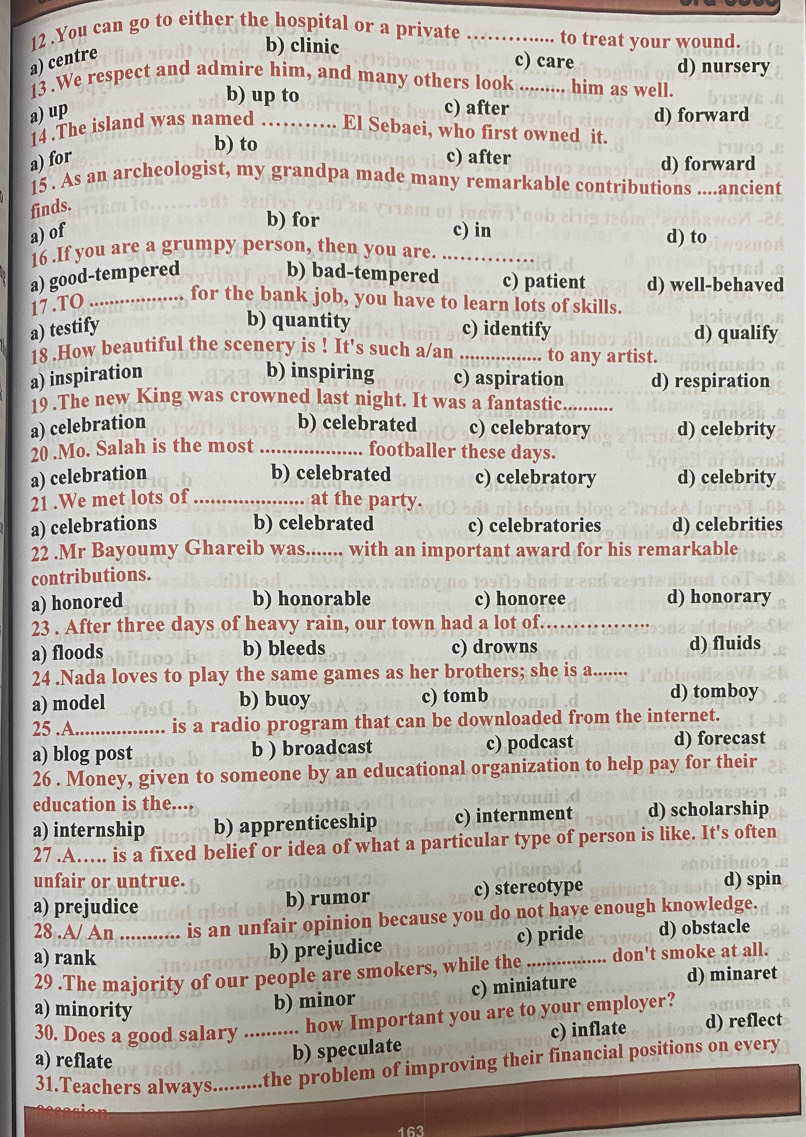 12 .You can go to either the hospital or a private .............. to treat your wound.
a) centre b) clinic c) care d) nursery
13 .We respect and admire him, and many others look ......... him as well.
a) up b) up to c) after d) forward
14 .The island was named ............ El Sebaei, who first owned it.
a) for b) to c) after d) forward
15 . As an archeologist, my grandpa made many remarkable contributions ....ancient
finds.
a) of b) for c) in d) to
16 .If you are a grumpy person, then you are. ..............
a) good-tempered b) bad-tempered c) patient d) well-behaved
17 .TO ................. for the bank job, you have to learn lots of skills.
a) testify b) quantity c) identify d) qualify
18 .How beautiful the scenery is ! It's such a/an ................ to any artist.
a) inspiration b) inspiring c) aspiration d) respiration
19 .The new King was crowned last night. It was a fantastic..........
a) celebration b) celebrated c) celebratory d) celebrity
20 .Mo. Salah is the most ................... footballer these days.
a) celebration b) celebrated c) celebratory d) celebrity
21 .We met lots of .................... at the party.
a) celebrations b) celebrated c) celebratories d) celebrities
22 .Mr Bayoumy Ghareib was....... with an important award for his remarkable
contributions.
a) honored b) honorable c) honoree d) honorary
23 . After three days of heavy rain, our town had a lot of.................
a) floods b) bleeds c) drowns d) fluids
24 .Nada loves to play the same games as her brothers; she is a.......
a) model b) buoy c) tomb d) tomboy
25 .A................. is a radio program that can be downloaded from the internet.
a) blog post b ) broadcast c) podcast d) forecast
26 . Money, given to someone by an educational organization to help pay for their
education is the....
a) internship b) apprenticeship c) internment d) scholarship
27 .A..... is a fixed belief or idea of what a particular type of person is like. It's often
unfair or untrue.
a) prejudice b) rumor c) stereotype d) spin
28 .A/ An ........... is an unfair opinion because you do not have enough knowledge.
a) rank b) prejudice c) pride d) obstacle
29 .The majority of our people are smokers, while the ................ don't smoke at all.
a) minority b) minor c) miniature d) minaret
30. Does a good salary .......... how Important you are to your employer?
a) reflate b) speculate c) inflate d) reflect
31.Teachers always.........the problem of improving their financial positions on every
163